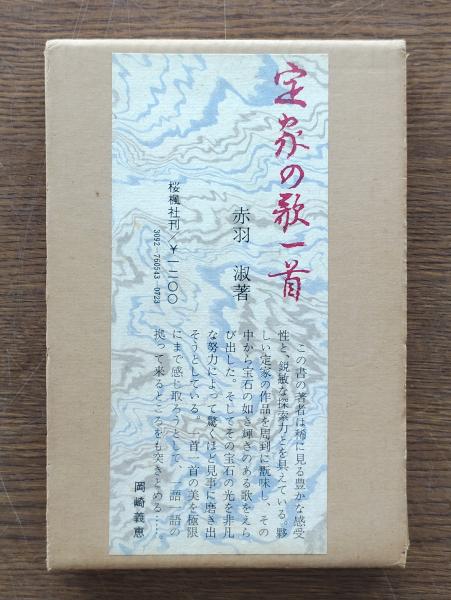 定家の歌一首
赤羽 淑著
桜楓社刊／￥一二〇〇
3092-760543-0723
この書の著者は稀に見る豊かな感受
性と、鋭敏な探索力とを具えている。夥
しい定家の作品を周到に翫味し、その
中から宝石の如き輝きのある歌をえら
び出した。そしてその宝石の光を非凡
な努力によって驚くほど見事に磨き出
そうとしている。一首一首の美を極限
にまで感じ取ろうとして、一語一語の
拠って来るところをも突きとめる……。
岡崎義恵